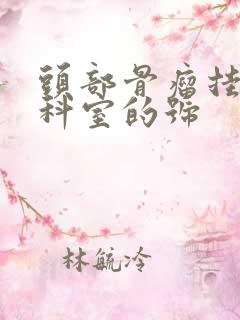 頭部骨瘤挂
科室的號
林毓冷